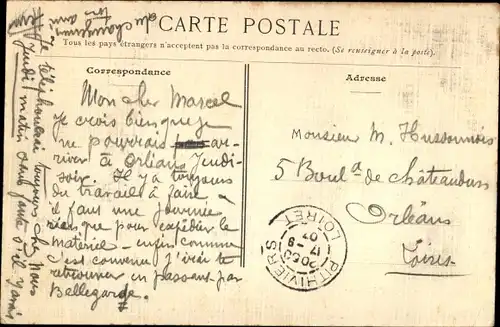 CARTE POSTALE
Tous les pays étrangers n'acceptent pas la correspondance au recto. (Se renseigner à la poste).
Correspondance
Mon cher Marcel
je crois bien que je
ne pourrais ar-
river à Orléans Jeudi-
soir. Il y a toujours
du travail à faire
il faut une journée
rien que pour expédier le
matériel - enfin comme
c'est convenu j'irai te
retrouver en passant par
Bellegarde.
Je téléphonerai toujours chez nous
Jeudi matin sans faute s'il y avait
du changement
Adresse
Monsieur M. Hussonnois
5 Boul.d de Châteaudun
Orléans
Loiret
PITHIVIERS
LOIRET
17 - 8
07